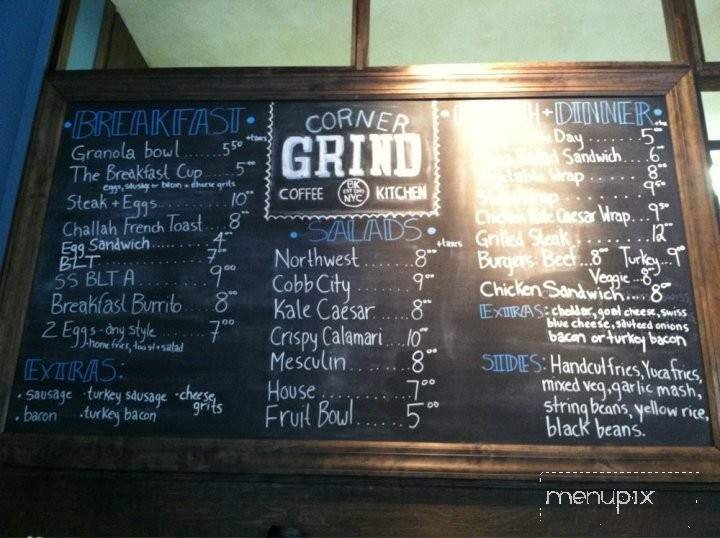 •BREAKFAST• +taxes
Granola bowl......5⁵⁰
The Breakfast Cup....5⁰⁰
eggs, sausage or bacon + cheese grits
Steak + Eggs.........10⁰⁰
Challah French Toast....8⁰⁰
Egg Sandwich...........4⁰⁰
BLT.....................7⁰⁰
SS BLT A............9⁰⁰
Breakfast Burrito 8⁰⁰
2 Eggs - any Style 7⁰⁰
home fries, toast + salad
EXTRAS:
• sausage • turkey sausage • cheese grits
• bacon • turkey bacon
CORNER
GRIND
COFFEE BK EST 2013 NYC KITCHEN
•SALADS• +taxes
Northwest.......8⁰⁰
Cobb City.......9⁰⁰
Kale Caesar.....8⁰⁰
Crispy Calamari....10⁰⁰
Mesculin.........8⁰⁰
House...........7⁰⁰
Fruit Bowl.....5⁰⁰
+ DINNER•
Day.......5⁰⁰
Sandwich...6⁰⁰
Wrap........8⁰⁰
9⁵⁰
Chicken Kale Caesar Wrap...9⁵⁰
Grilled Steak...........12⁰⁰
Burgers: Beef...8⁰⁰ Turkey..9⁰⁰
Veggie..8⁰⁰
Chicken Sandwich....8⁰⁰
EXTRAS: cheddar, goat cheese, swiss
blue cheese, sauteed onions
bacon or turkey bacon
SIDES: Handcut fries, Yuca fries,
mixed veg, garlic mash,
string beans, yellow rice,
black beans.
menupix